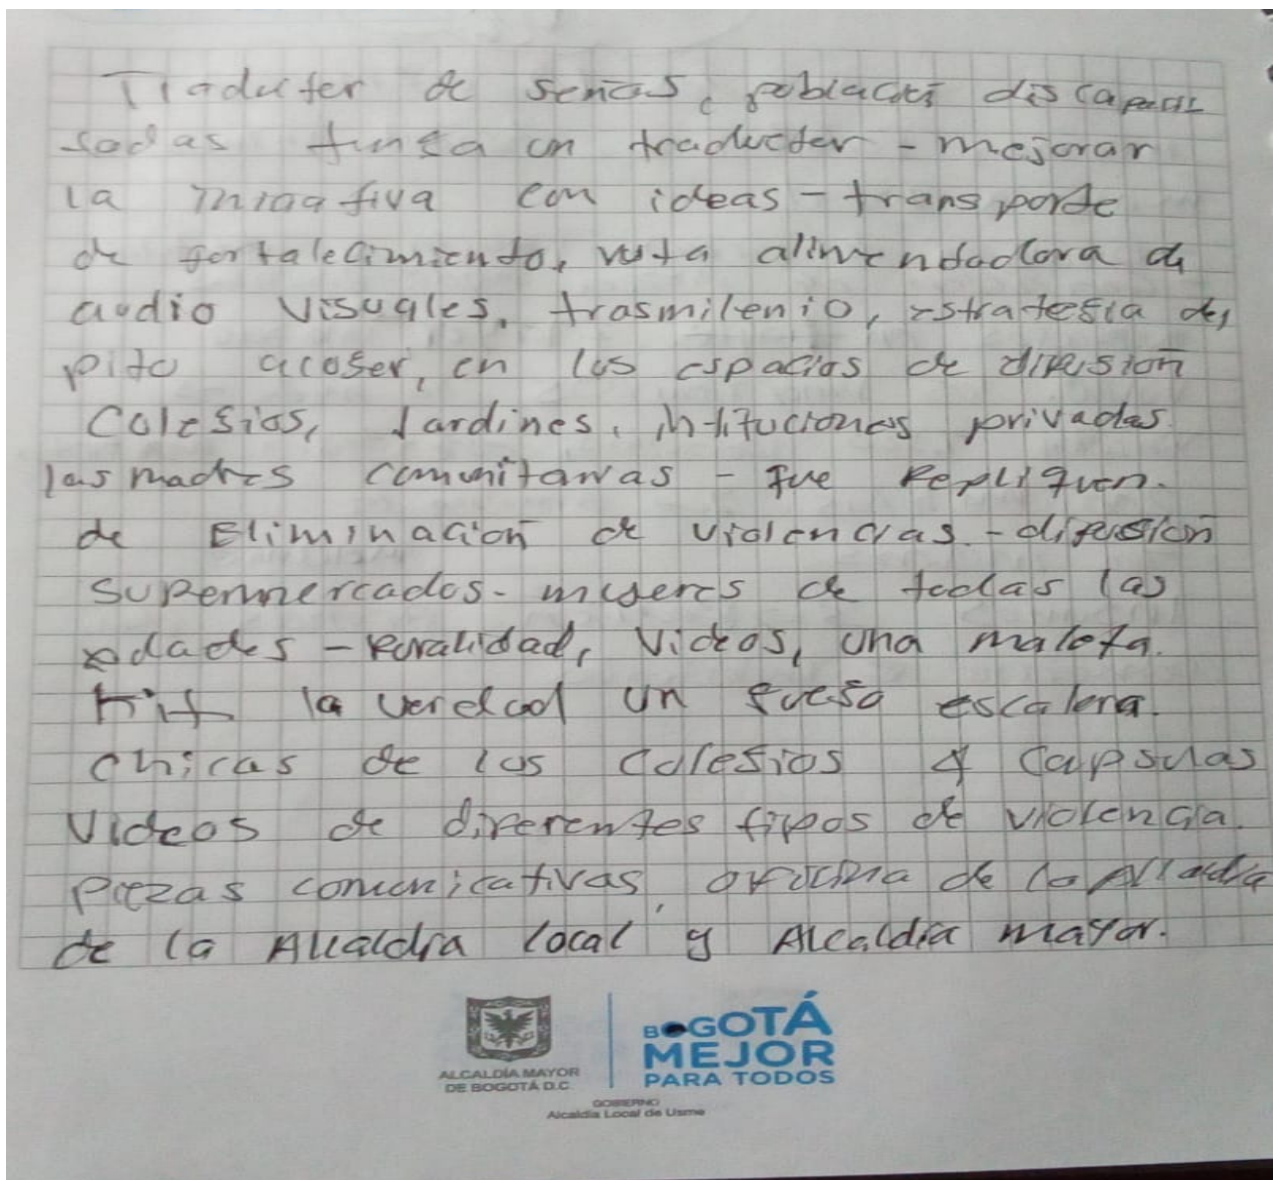 Traducter de señas, població discapaci
sodas tunga un traducter - mejorar
la iniciativa con ideas - transporte
de fortalecimiento, ruta alimendadora de
audio visuales, trasmilenio, estrategia de,
pito acoser, en los espacios de difusión
Colegios, Jardines, intituciones privadas.
las madres comunitarias - que Repliquen.
de Eliminación de violencias - difusión
supermercados - mujeres de todas las
edades - Ruralidad, Videos, una maleta.
Kit la verdad un juego escalera.
chicas de los colegios 4 Capsulas
Videos de diferentes tipos de violencia.
Piezas comunicativas, oficina de la
de la Alcaldía local y Alcaldía mayor.
ALCALDÍA MAYOR
DE BOGOTÁ D.C.
BOGOTÁ
MEJOR
PARA TODOS
GOBIERNO
Alcaldía Local de Usme